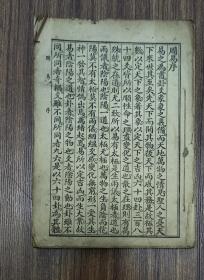 周易序
易之為書卦爻彖象之義備而天地萬物之情見聖人之憂天
下來世其至矣先天下而開其物後天下而成其務是故極其
數以定天下之象著其象以定天下之吉凶六十四卦三百八
十四爻皆所以順性命之理盡變化之道也散之在理則有萬
殊統之在道則无二致所以易有太極是生兩儀太極者道也
兩儀者陰陽也陰陽一道也太極无極也萬物之生負陰而抱
陽莫不有太極莫不有兩儀絪縕交感變化不窮形一受其生
神一發其智情偽出焉萬緒起焉易所以定吉凶而生大業故
易者陰陽之道也卦者陰陽之物也爻者陰陽之動也卦雖不
同所同者奇耦爻雖不同所同者九六是以六十四卦為其體
周易 序